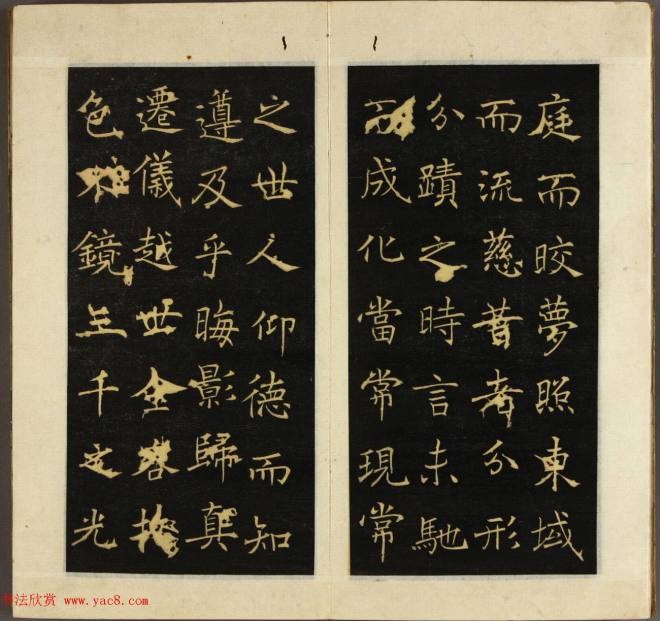 庭而晈夢照東域
而流慈昔者分形
分蹟之時言未馳
而成化當常現常
之世人仰德而知
遵及乎晦影歸真
遷儀越世金容掩
色不鏡三千之光
书法欣赏 www.yac8.com